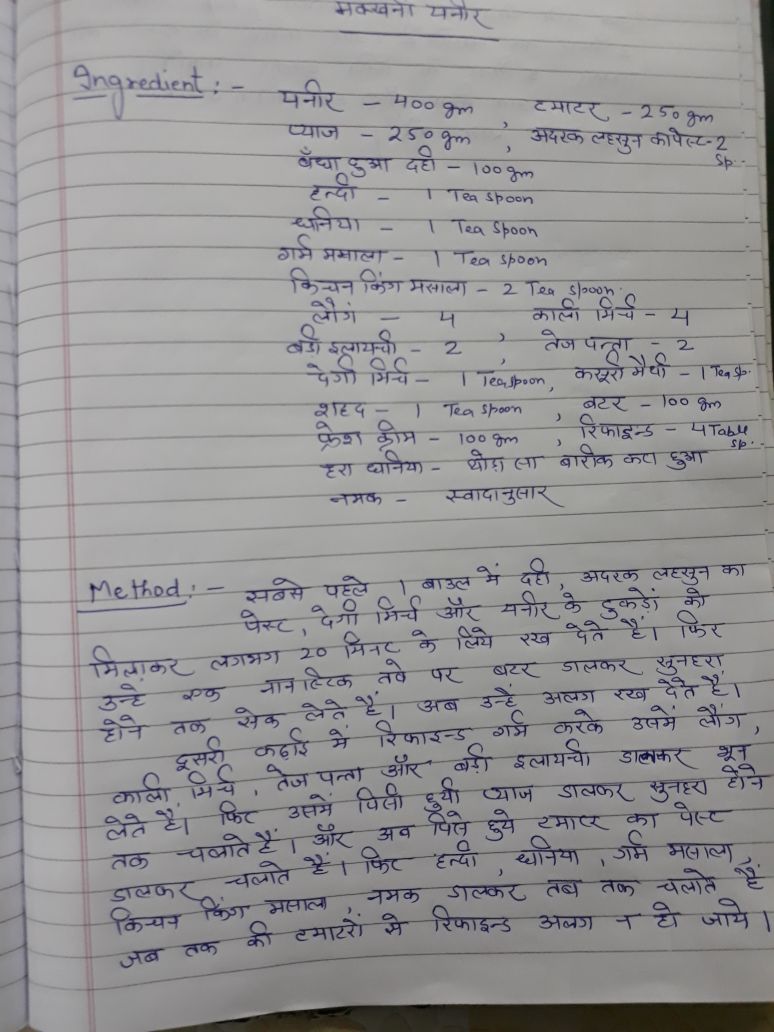 मक्खनी पनीर
Ingredient :-
पनीर - 400 gm , टमाटर - 250 gm
प्याज - 250 gm , अदरक लहसुन का पेस्ट - 2 Sp.
बँधा हुआ दही - 100 gm
हल्दी - 1 Tea Spoon
धनिया - 1 Tea Spoon
गर्म मसाला - 1 Tea Spoon
किचन किंग मसाला - 2 Tea Spoon.
लौंग - 4 , काली मिर्च - 4
बड़ी इलायची - 2 , तेज पत्ता - 2
देगी मिर्च - 1 Teaspoon, कसूरी मैथी - 1 Tea Sp.
शहद - 1 Tea Spoon , बटर - 100 gm
फ्रेश क्रीम - 100 gm , रिफाइन्ड - 4 Table Sp.
हरा धनिया - थोड़ा सा बारीक कटा हुआ
नमक - स्वादानुसार
Method :- सबसे पहले 1 बाउल में दही, अदरक लहसुन का
पेस्ट, देगी मिर्च और पनीर के टुकड़ों को
मिलाकर लगभग 20 मिनट के लिये रख देते हैं। फिर
उन्हे एक नानस्टिक तवे पर बटर डालकर सुनहरा
होने तक सेक लेते हैं। अब उन्हें अलग रख देते हैं।
दूसरी कढ़ाई में रिफाइन्ड गर्म करके उसमें लौंग,
काली मिर्च, तेज पत्ता और बड़ी इलायची डालकर भून
लेते है। फिर उसमें पिसी हुयी प्याज डालकर सुनहरा होने
तक चलाते हैं। और अब पिसे हुये टमाटर का पेस्ट
डालकर चलाते हैं। फिर हल्दी, धनिया, गर्म मसाला,
किचन किंग मसाला, नमक डालकर तब तक चलाते हैं
जब तक की टमाटरों से रिफाइन्ड अलग न हो जाये।